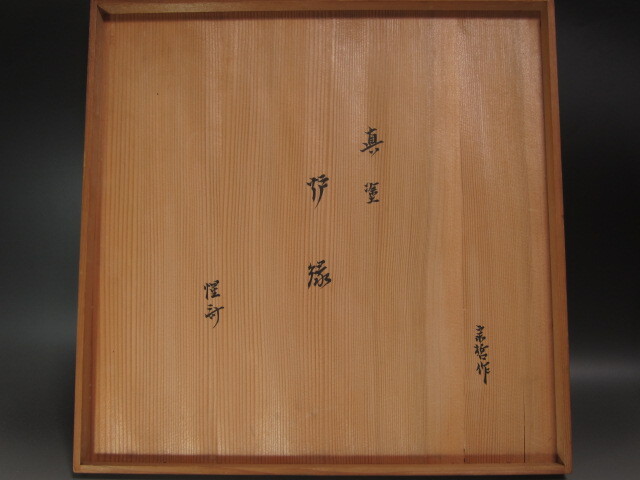 真塗
炉縁
惺斎
宗哲作